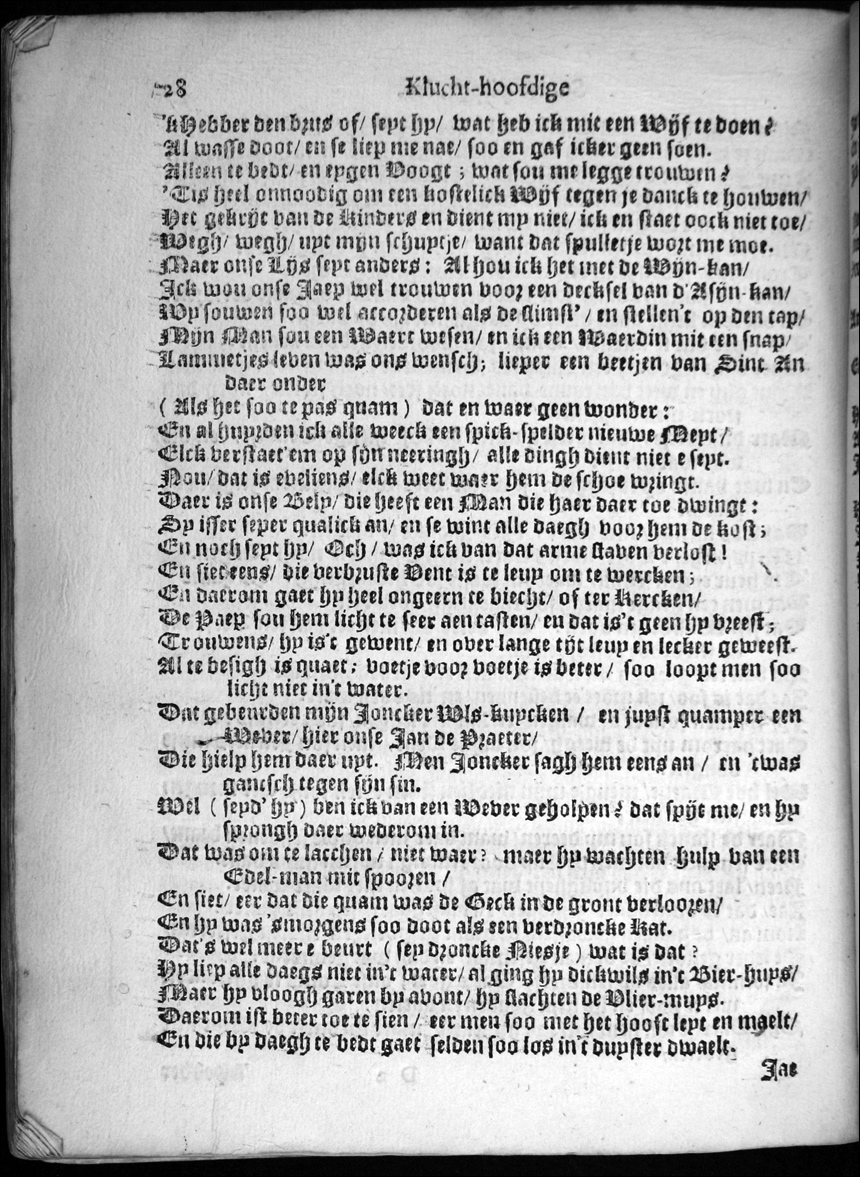 28 Klucht-hoofdige
'k Hebber den bruts of/ seyt hy/ wat heb ick mit een Wijf te doen?
Al wasse doot/ en se liep me nae/ soo en gaf icker geen soen.
Alleen te bedt/ en eygen Voogt; wat sou me legge trouwen?
'Tis heel onnoodig om een kostelick Wijf tegen je danck te houwen/
Het gekrijt van de Kinders en dient my niet/ ick en staet oock niet toe/
Wegh/ wegh/ uyt mijn schuytje/ want dat spulletje wort me moe.
Maer onse Lijs seyt anders: Al hou ick het met de Wijn-kan/
Ick wou onse Jaep wel trouwen voor een decksel van d'Asijn-kan/
Wy souwen soo wel accorderen als de slimst'/ en stellen't op den tap/
Mijn Man sou een Waert wesen/ en ick een Waerdin mit een snap/
Lammetjes leven was ons wensch; lieper een beetjen van Sint An
daer onder
( Als het soo te pas quam ) dat en waer geen wonder:
En al huyrden ick alle weeck een spick-spelder nieuwe Meyt/
Elck verstaet'em op sijn neeringh/ alle dingh dient niet e seyt.
Nou/ dat is eveliens/ elck weet waer hem de schoe wringt.
Daer is onse Bely/ die heeft een Man die haer daer toe dwingt:
Sy isser seper qualick an/ en se wint alle daegh voor hem de kost;
En noch seyt hy/ Och/ was ick van dat arme slaven verlost!
En siet eens/ die verbruste Vent is te leuy om te wercken;
En daerom gaet hy heel ongeern te biecht/ of ter Kercken/
De Paep sou hem licht te seer aen tasten/ en dat is't geen hy vreest;
Trouwens/ hy is't gewent/ en over lange tijt leuy en lecker geweest.
Al te besigh is quaet; voetje voor voetje is beter/ soo loopt men soo
licht niet in't water.
Dat gebeurden mijn Joncker Uls-kuycken / en juyst quamper een
Wever/ hier onse Jan de Praeter/
Die hielp hem daer uyt. Men Joncker sagh hem eens an / en 'twas
gantsch tegen sijn sin.
Wel ( seyd' hy ) ben ick van een Wever geholpen? dat spijt me/ en hy
sprongh daer wederom in.
Dat was om te lacchen / niet waer? maer hy wachten hulp van een
Edel-man mit spooren /
En siet/ eer dat die quam was de Geck in de gront verlooren/
En hy was 'smorgens soo doot als een verdroncke Kat.
Dat's wel meer e beurt ( sey droncke Niesje ) wat is dat?
Hy liep alle daegs niet in't water/ al ging hy dickwils in't Bier-huys/
Maer hy vloogh garen by avont/ hy slachten de Vlier-muys.
Daerom ist beter toe te sien / eer men soo met het hooft leyt en maelt/
En die by daegh te bedt gaet selden soo los in't duyster dwaelt.
Jae